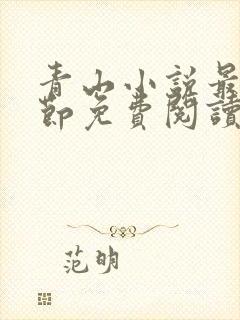 青山小說最
節免費閱讀
范明